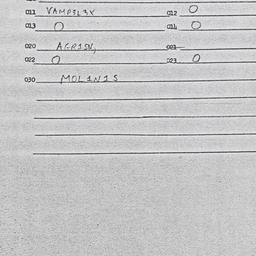 011 VAMP3L3X 012 O
013 O 014 O
020 AGR1SN, 021
022 O 023 O
030 MOL1N1S